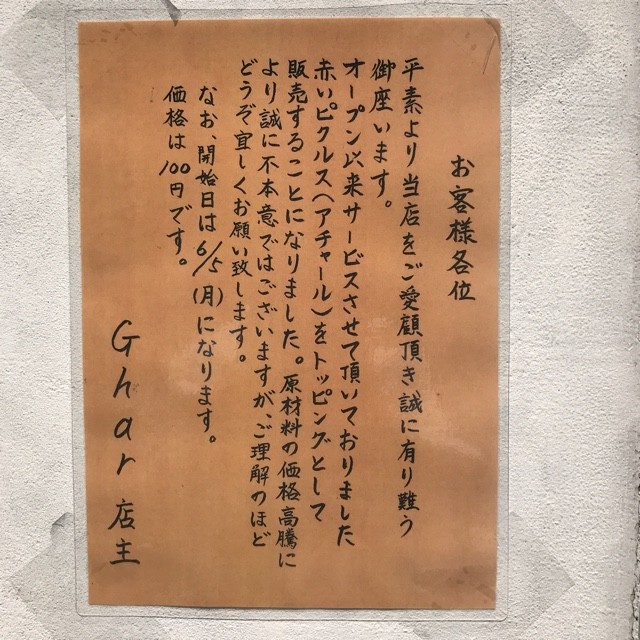 お客様各位
平素より当店をご愛顧頂き誠に有り難う
御座います。
オープン以来サービスさせて頂いておりました
赤いピクルス(アチャール)をトッピングとして
販売することになりました。原材料の価格高騰に
より誠に不本意ではございますが、ご理解のほど
どうぞ宜しくお願い致します。
なお、開始日は6/5(月)になります。
価格は100円です。
Ghar 店主